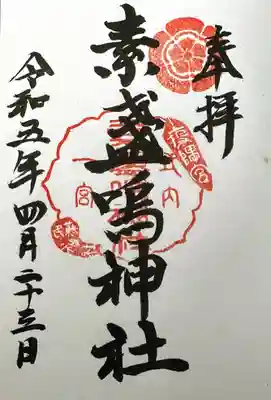 奉拝
素盞嗚神社
令和五年四月二十三日